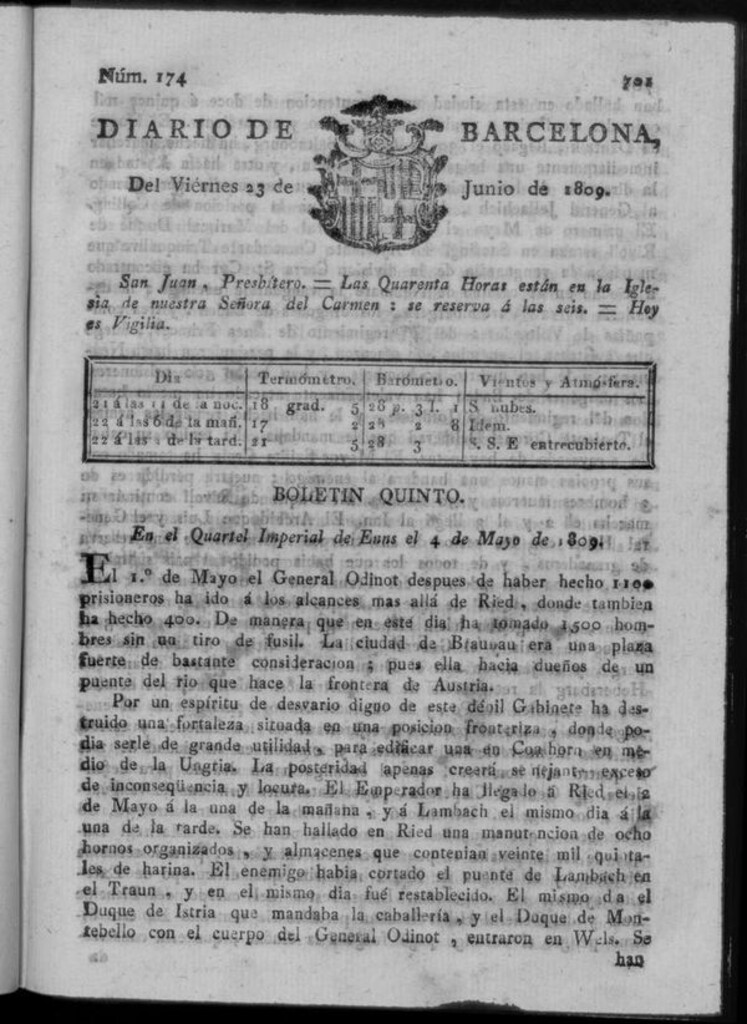 Núm. 174 701
DIARIO DE BARCELONA,
Del Viérnes 23 de Junio de 1809.
San Juan, Presbítero. = Las Quarenta Horas están en la Igle-
sia de nuestra Señora del Carmen : se reserva á las seis. = Hoy
es Vigilia.
Dia Termómetro. Barómetro. Vientos y Atmósfera.
21 á las 11 de la noc. 18 grad. 5 28 p. 3 l. 1 S. nubes.
22 á las 6 de la mañ. 17 2 28 2 8 Idem.
22 á las 2 de la tard. 21 5 28 3 S. S. E entrecubierto.
BOLETIN QUINTO.
En el Quartel Imperial de Enns el 4 de Mayo de 1809.
El 1.º de Mayo el General Odinot despues de haber hecho 1100
prisioneros ha ido á los alcances mas allá de Ried, donde tambien
ha hecho 400. De manera que en este dia ha tomado 1500 hom-
bres sin un tiro de fusil. La ciudad de Braunau era una plaza
fuerte de bastante consideracion ; pues ella hacia dueños de un
puente del rio que hace la frontera de Austria.
Por un espíritu de desvario digno de este débil Gabinete ha des-
truido una fortaleza situada en una posicion fronteriza, donde po-
dia serle de grande utilidad, para edificar una en Comhorn en me-
dio de la Ungria. La posteridad apenas creerá semejante exceso
de inconseqüencia y locura. El Emperador ha llegado á Ried el 2
de Mayo á la una de la mañana, y á Lambach el mismo dia á la
una de la tarde. Se han hallado en Ried una manutencion de ocho
hornos organizados, y almacenes que contenian veinte mil quinta-
les de harina. El enemigo habia cortado el puente de Lambach en
el Traun, y en el mismo dia fué restablecido. El mismo dia el
Duque de Istria que mandaba la caballería, y el Duque de Mon-
tebello con el cuerpo del General Odinot, entraron en Wels. Se
han